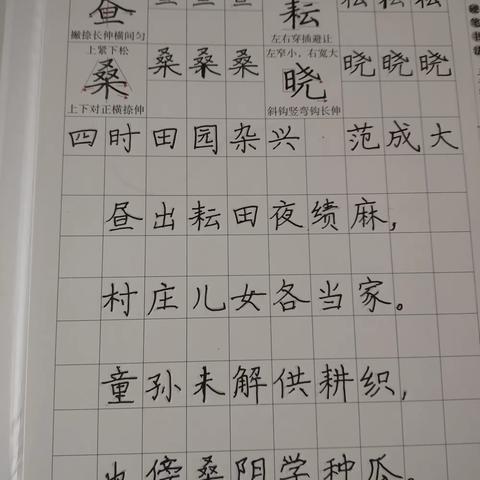 昼 耘
撇捺长伸横间匀 左右穿插避让
上紧下松 左窄小，右宽大
桑 桑 桑 桑 晓 晓 晓 晓
上下对正横捺伸 斜钩竖弯钩长伸
四时田园杂兴 范成大
昼出耘田夜绩麻，
村庄儿女各当家。
童孙未解供耕织，
也傍桑阴学种瓜。